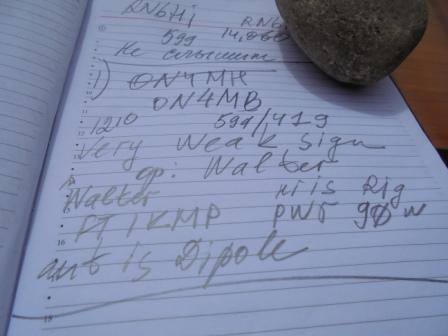 RN6HI RN6
599 14,060
Не слышит
1) ON4MH
ON4MB
1210 599/419
Very weak sign
op: Walter
Walter HiIs Rig
FT1KMP PWR 90 W
ant is Dipole